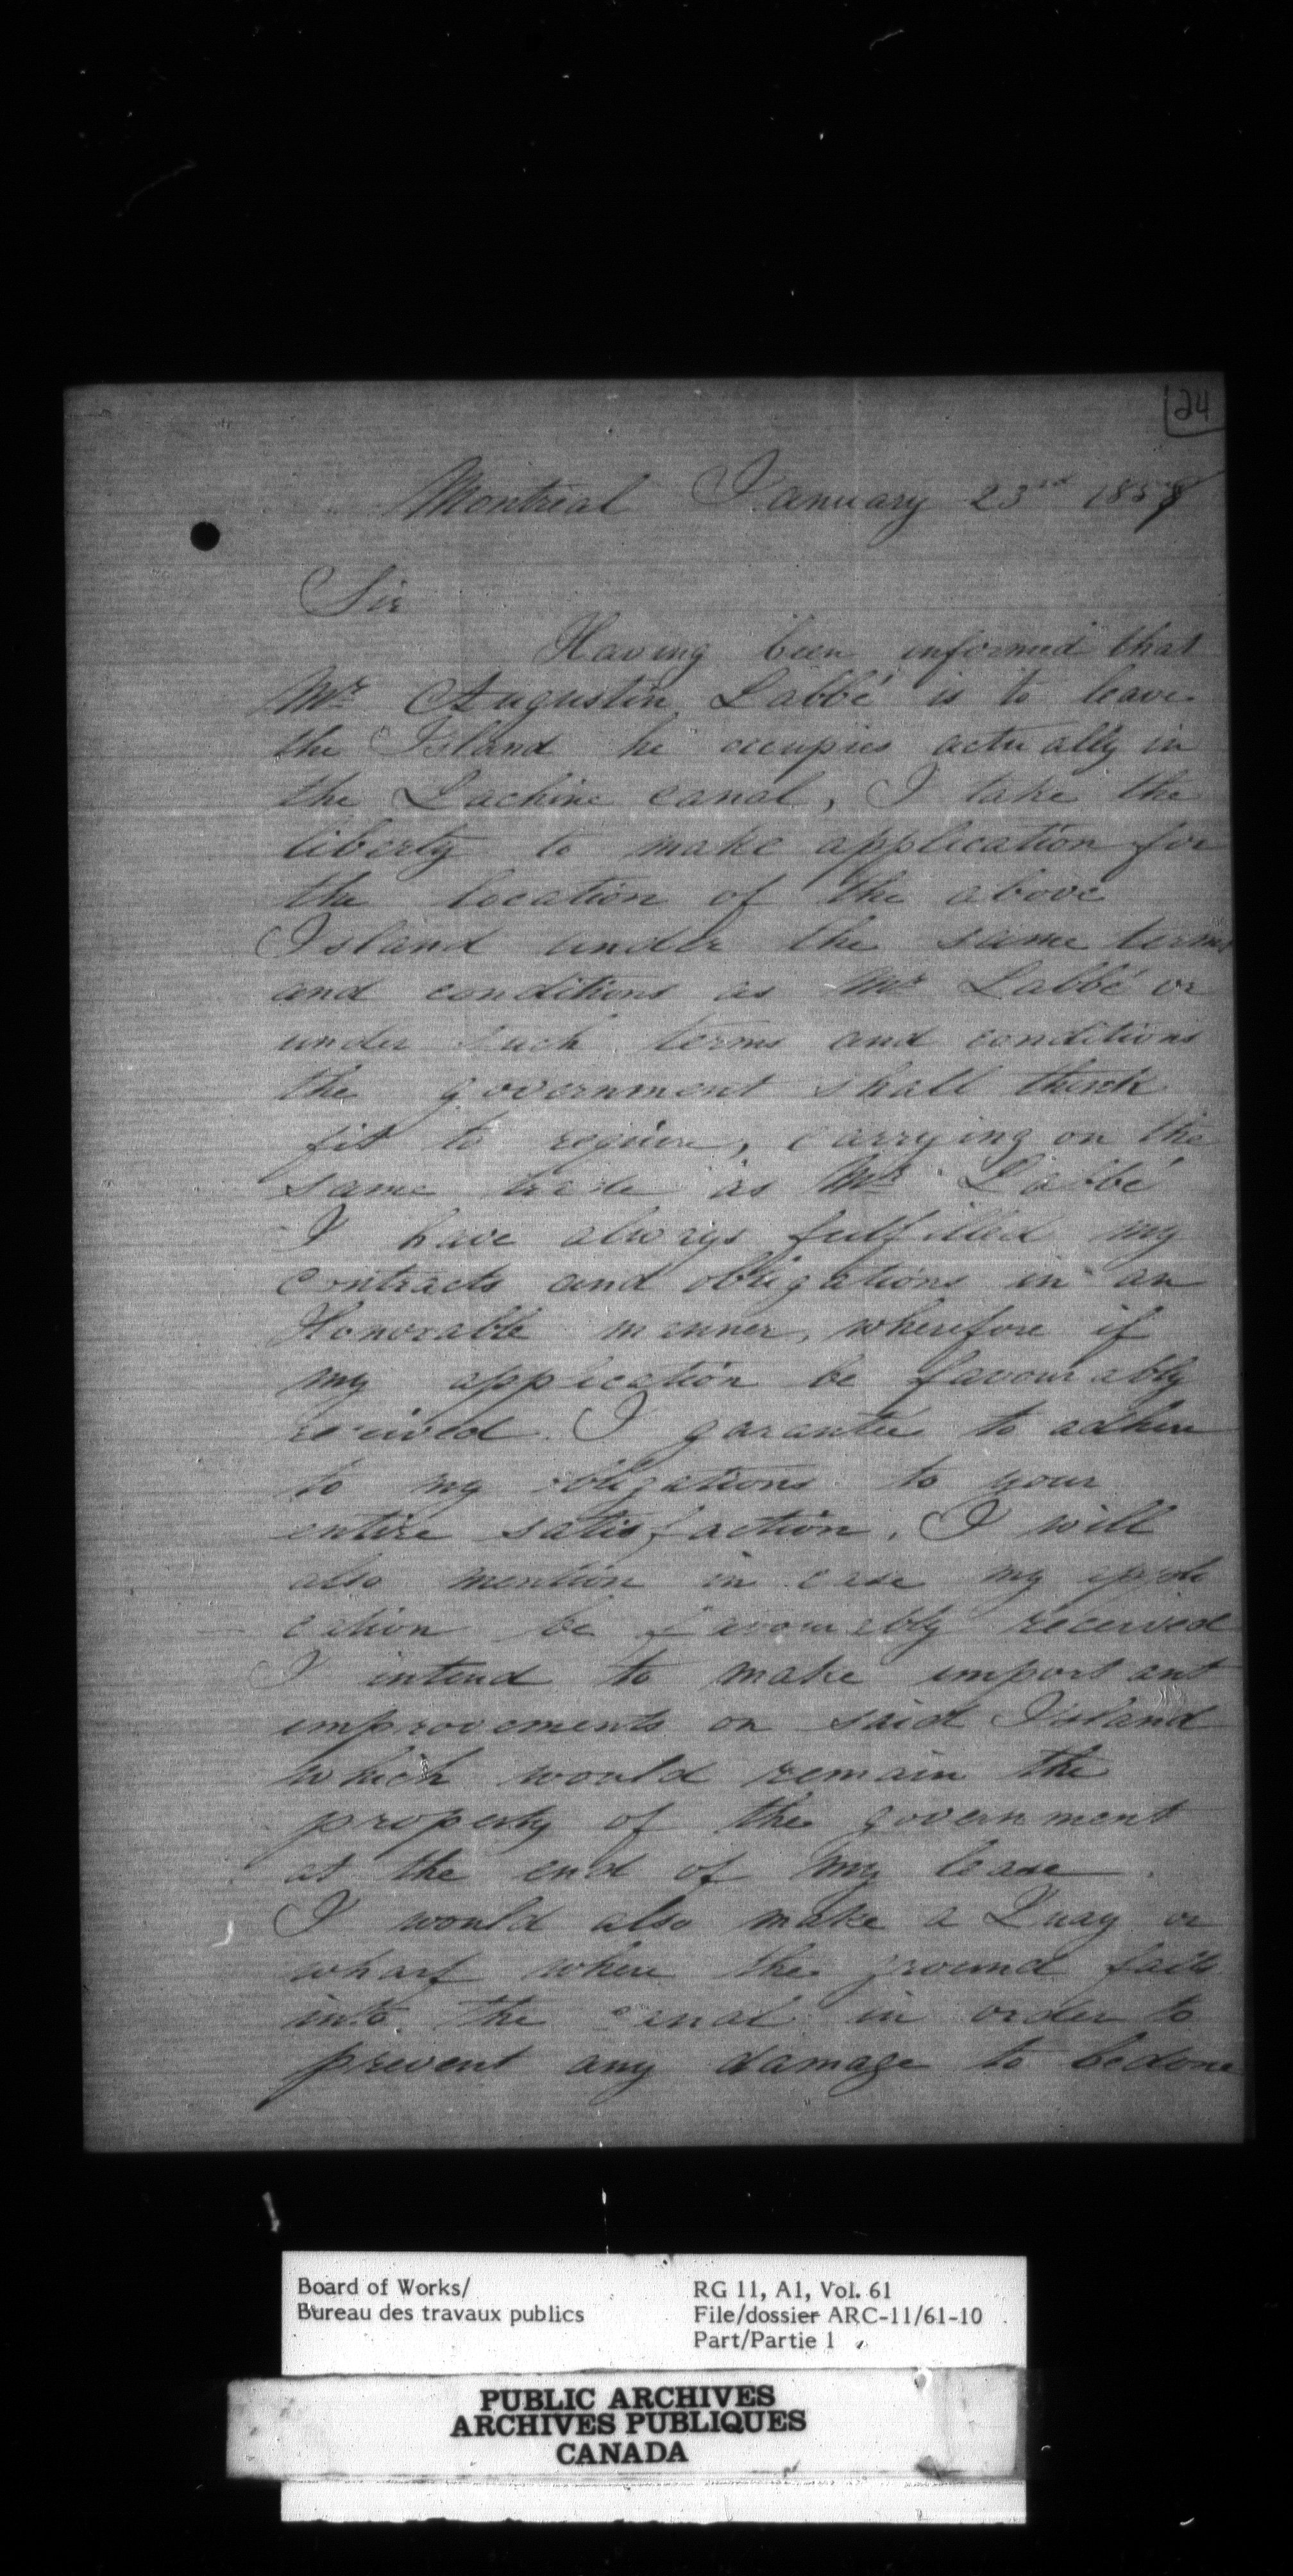 24
Montreal January 23rd 185
Sir
Having been informed that
Mr Augustin Labbé is to leave
the Island he occupies actually in
the Lachine canal, I take the
liberty to make application for
the location of the above
Island under the same terms
and conditions as Mr Labbé or
under such terms and conditions
the government shall think
fit to require, carrying on the
same trade as Mr Labbé
I have always fulfilled my
contracts and obligations in an
Honorable manner, wherefore if
my application be favourably
received. I garantee to adhere
to my obligations to your
entire satisfaction. I will
also mention in case my appli
cation be favourably received
I intend to make important
improvements on said Island
which would remain the
property of the government
at the end of my lease
I would also make a Quay or
wharf where the ground falls
into the canal in order to
prevent any damage to be done
Board of Works/
Bureau des travaux publics
RG 11, A1, Vol. 61
File/dossier ARC-11/61-10
Part/Partie 1
PUBLIC ARCHIVES
ARCHIVES PUBLIQUES
CANADA